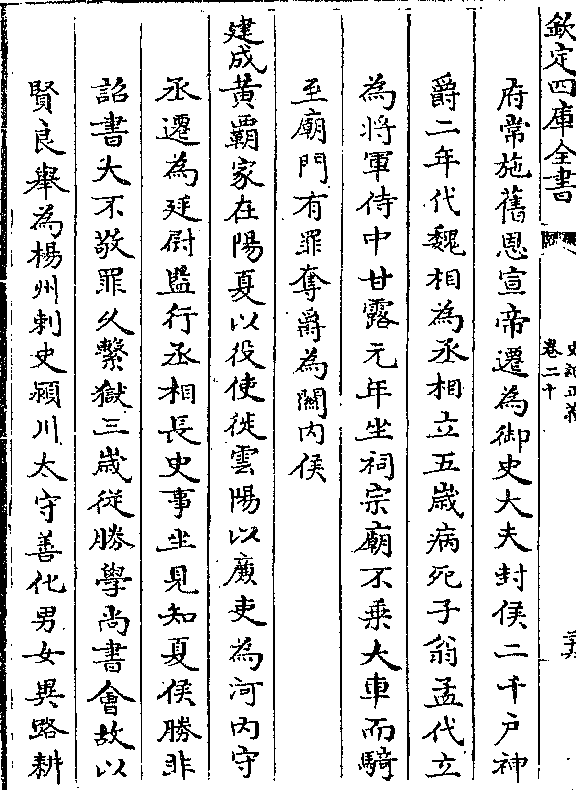 欽定四庫全書
史記正義
卷二十
府常施舊恩宣帝遷為御史大夫封侯二千户神
爵二年代魏相為丞相立五歲病死子翁孟代立
為將軍侍中甘露元年坐祠宗廟不乗大車而騎
至廟門有罪奪爵為關内侯
建成黄霸家在陽夏以役使徙雲陽以廉吏為河内守
丞遷為廷尉監行丞相長史事坐見知夏侯勝非
詔書大不敬罪久繫獄三歲從勝學尚書會赦以
賢良舉為楊州刺史潁川太守善化男女異路耕